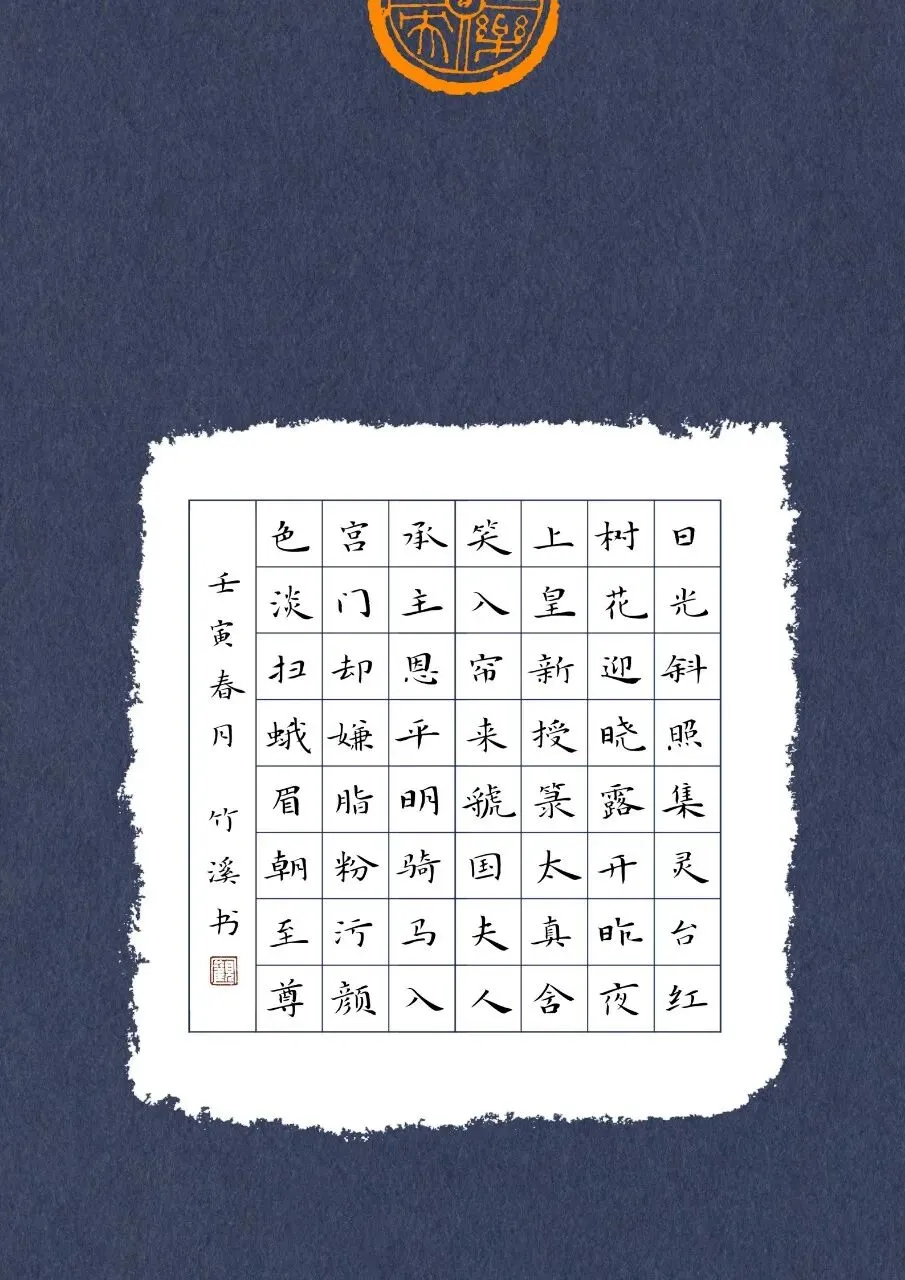 日光斜照集灵台红
树花迎晓露开昨夜
上皇新授箓太真含
笑入帘来虢国夫人
承主恩平明骑马入
宫门却嫌脂粉污颜
色淡扫蛾眉朝至尊
壬寅春月 竹溪书